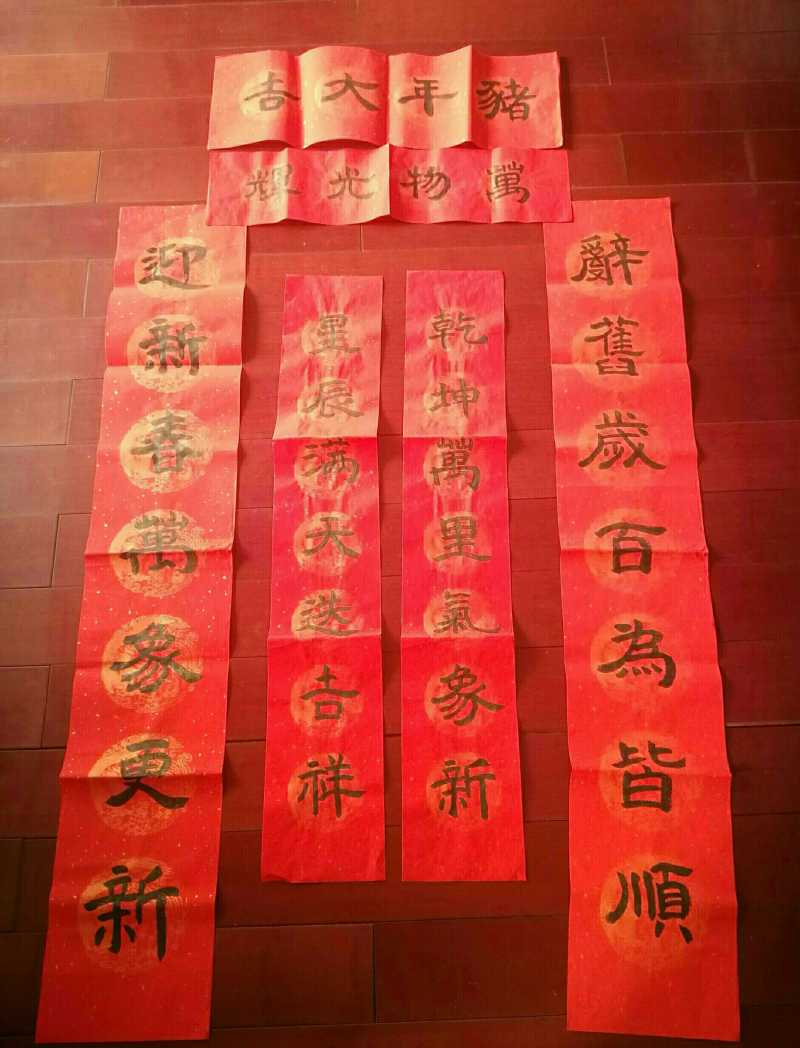 豬年大吉
萬物光輝
辭舊歲百為皆順
迎新春萬象更新
乾坤萬里氣象新
星辰满天送吉祥